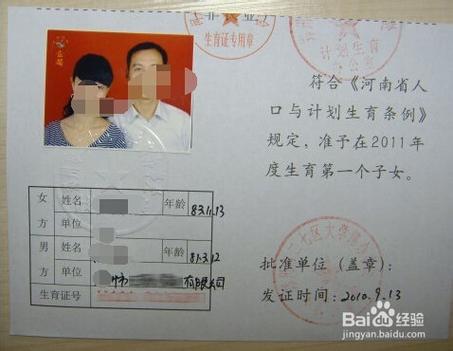 生育证专用章
计划生育
符合《河南省人
口与计划生育条例》
规定，准予在2011年
度生育第一个子女。
女方 姓名 年龄 83.11.13
单位
男方 姓名 年龄 81.3.12
单位 有限公司
生育证号
二七区大学路办
批准单位（盖章）：
发证时间：2010.9.13
Baidu经验
jingyan.baidu.com